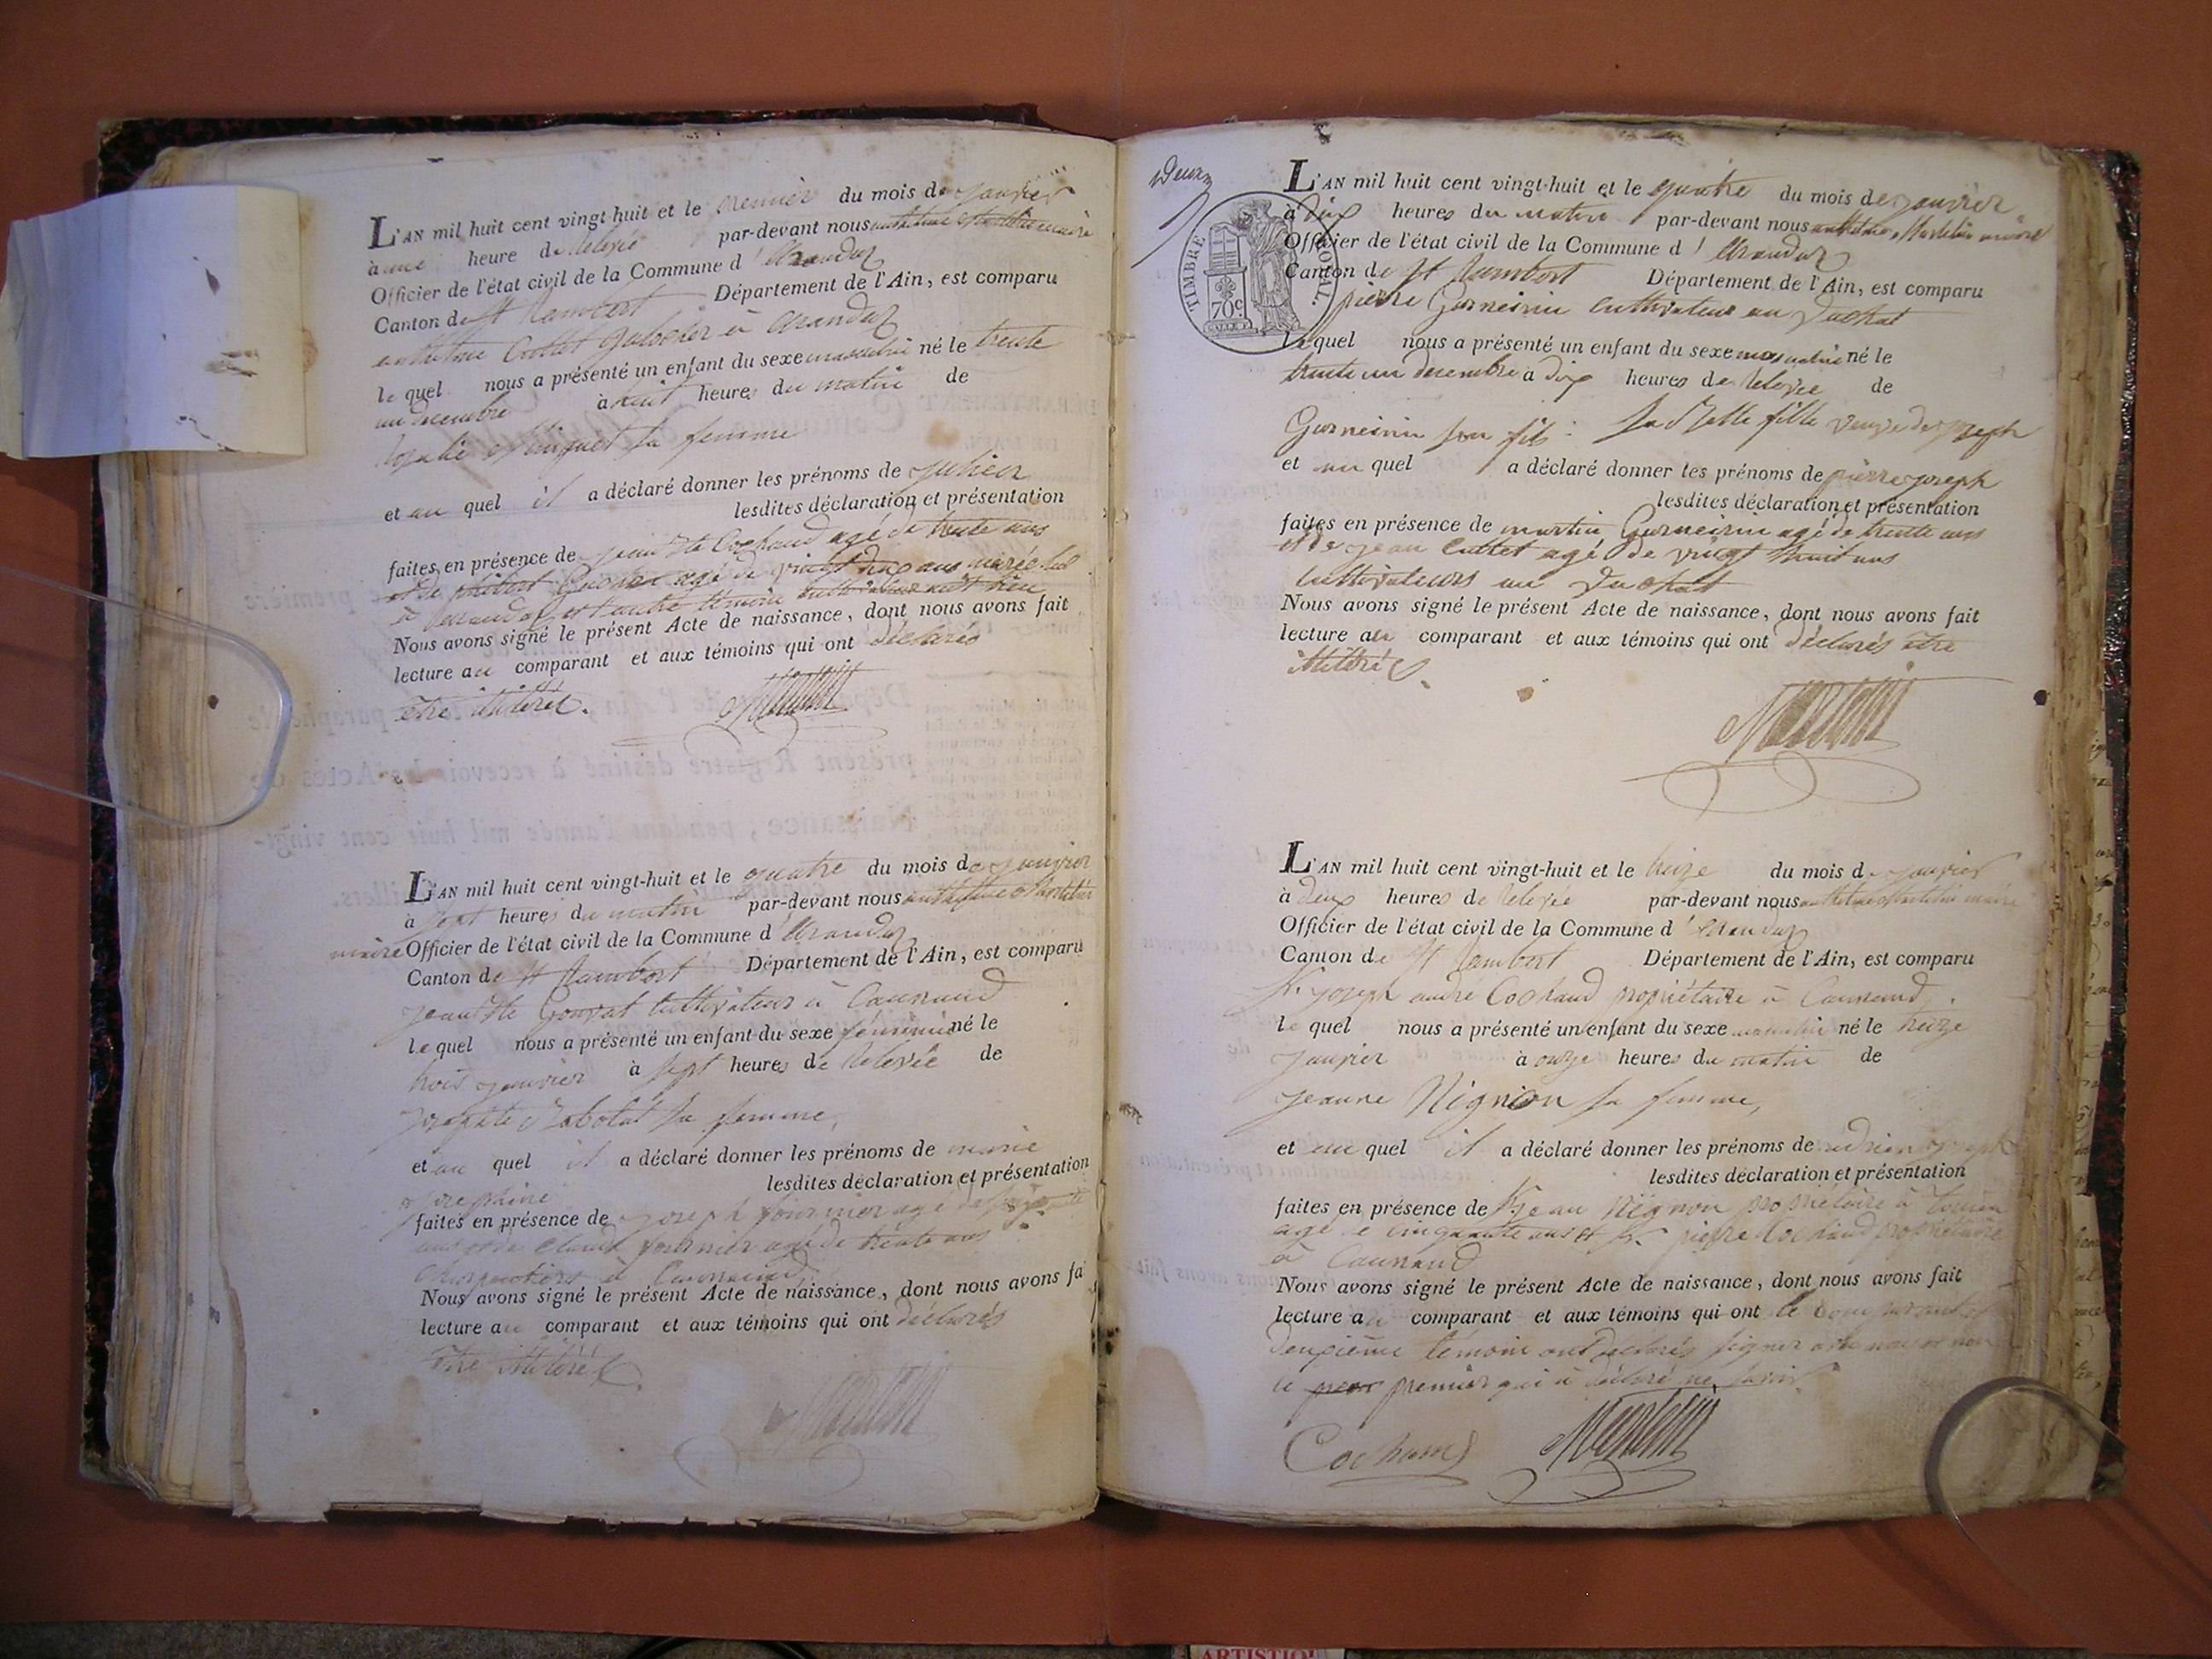 L'AN mil huit cent vingt-huit et le premier du mois de janvier
à une heure de relevée par-devant nous anthelme Martelin maire
Officier de l'état civil de la Commune d'Arandaz
Canton de St Rambert Département de l'Ain, est comparu
anthelme Cullet à Arandaz
le quel nous a présenté un enfant du sexe masculin né le trente
un décembre à huit heures du matin de
sa femme
et au quel il a déclaré donner les prénoms de julien
lesdites déclaration et présentation
faites en présence de jean Bte Cochaud agé de trente ans
et de philibert agé de vingt ans
à Arandaz et l'autre témoin
Nous avons signé le présent Acte de naissance, dont nous avons fait
lecture au comparant et aux témoins qui ont déclarés
être illitéré.
L'AN mil huit cent vingt-huit et le quatre du mois de janvier
à sept heures du matin par-devant nous anthelme Martelin
maire Officier de l'état civil de la Commune d'Arandaz
Canton de St Rambert Département de l'Ain, est comparu
jean Bte Gonvat cultivateur à Caunand
le quel nous a présenté un enfant du sexe féminin né le
trois janvier à sept heures de relevée de
sa femme,
et au quel il a déclaré donner les prénoms de marie
josephine lesdites déclaration et présentation
faites en présence de joseph fournier agé de
ans et de Claude fournier agé de trente ans
charpentiers à Caunand
Nous avons signé le présent Acte de naissance, dont nous avons fa
lecture au comparant et aux témoins qui ont déclarés
être illitéré
Deux
TIMBRE ROYAL.
70c
L'AN mil huit cent vingt-huit et le quatre du mois de janvier
à dix heures du matin par-devant nous anthelme Martelin maire
Officier de l'état civil de la Commune d'Arandaz
Canton de St Rambert Département de l'Ain, est comparu
pierre Gorneirin cultivateur au Duchat
le quel nous a présenté un enfant du sexe masculin né le
trente un decembre à dix heures de relevée de
sa belle fille veuve de joseph
Gorneirin son fils
et au quel a déclaré donner les prénoms de pierre joseph
lesdites déclaration et présentation
faites en présence de martin Gorneirin agé de trente ans
et de jean Cullet agé de vingt huit ans
cultivateurs au Duchat
Nous avons signé le présent Acte de naissance, dont nous avons fait
lecture au comparant et aux témoins qui ont déclarés être
illitéré
L'AN mil huit cent vingt-huit et le treize du mois de janvier
à deux heures de relevée par-devant nous anthelme Martelin maire
Officier de l'état civil de la Commune d'Arandaz
Canton de St Rambert Département de l'Ain, est comparu
Sr joseph andré Cochaud propriétaire à Caunand
le quel nous a présenté un enfant du sexe masculin né le treize
janvier à onze heures du matin de
jeanne Nignon sa femme,
et au quel il a déclaré donner les prénoms de adrien joseph
lesdites déclaration et présentation
faites en présence de Sr jean Nignon propriétaire à
agé de cinquante ans et Sr pierre Cochaud propriétaire
à Caunand
Nous avons signé le présent Acte de naissance, dont nous avons fait
lecture au comparant et aux témoins qui ont le comparant et
deuxième témoin ont déclarés signer avec nous et non
le premier qui a déclaré ne savoir
Cochaud